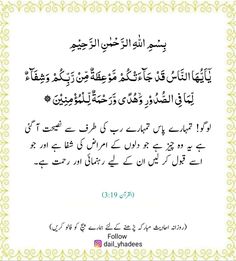 بِسْمِ اللهِ الرَّحْمٰنِ الرَّحِيْمِ
يٰٓاَيُّهَا النَّاسُ قَدْ جَآءَتْكُمْ مَّوْعِظَةٌ مِّنْ رَّبِّكُمْ وَشِفَآءٌ
لِّمَا فِي الصُّدُوْرِ وَهُدًى وَّرَحْمَةٌ لِّلْمُؤْمِنِيْنَ
لوگو! تمہارے پاس تمہارے رب کی طرف سے نصیحت آ گئی
ہے یہ وہ چیز ہے جو دلوں کے امراض کی شفا ہے اور جو
اسے قبول کر لیں ان کے لیے رہنمائی اور رحمت ہے۔
(القرآن 3:19)
(روزانہ احادیث مبارکہ پڑھنے کے لئے ہمارے پیج کو فالو کریں)
Follow
dail_yhadees